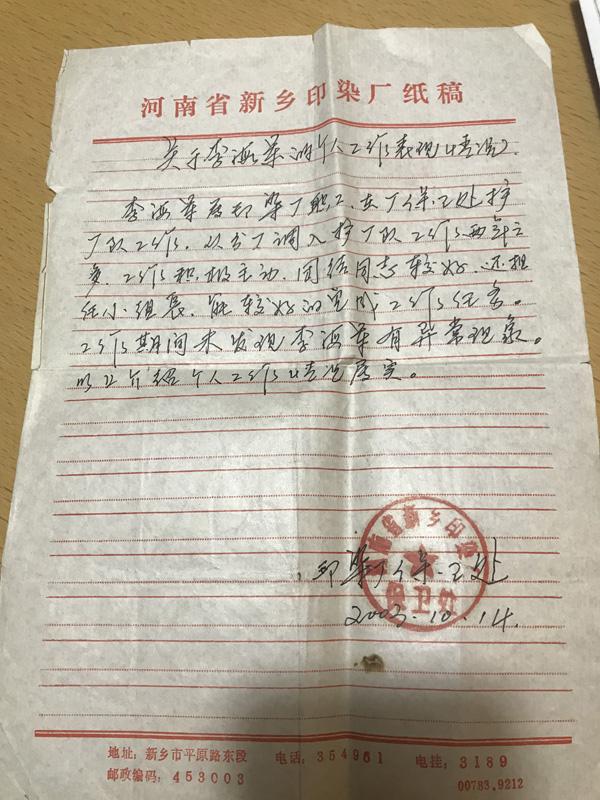 河南省新乡印染厂纸稿
关于李海军的个人工作表现情况
李海军原印染厂职工,在厂保卫处护
厂队工作。从分厂调入护厂队工作两年之
多,工作积极主动,团结同志较好,还担
任小组长,能较好的完成工作任务。
工作期间未发现李海军有异常现象。
以上介绍个人工作情况属实。
河南省新乡印染厂
保卫处
印染厂保卫处
2003.10.14.
地址:新乡市平原路东段 电话:354961 电挂:3189
邮政编码:453003 00783.9212